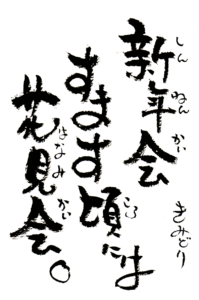 新年会
しんねんかい
すます頃には
ころ
花見会。
はなみかい
きみどり